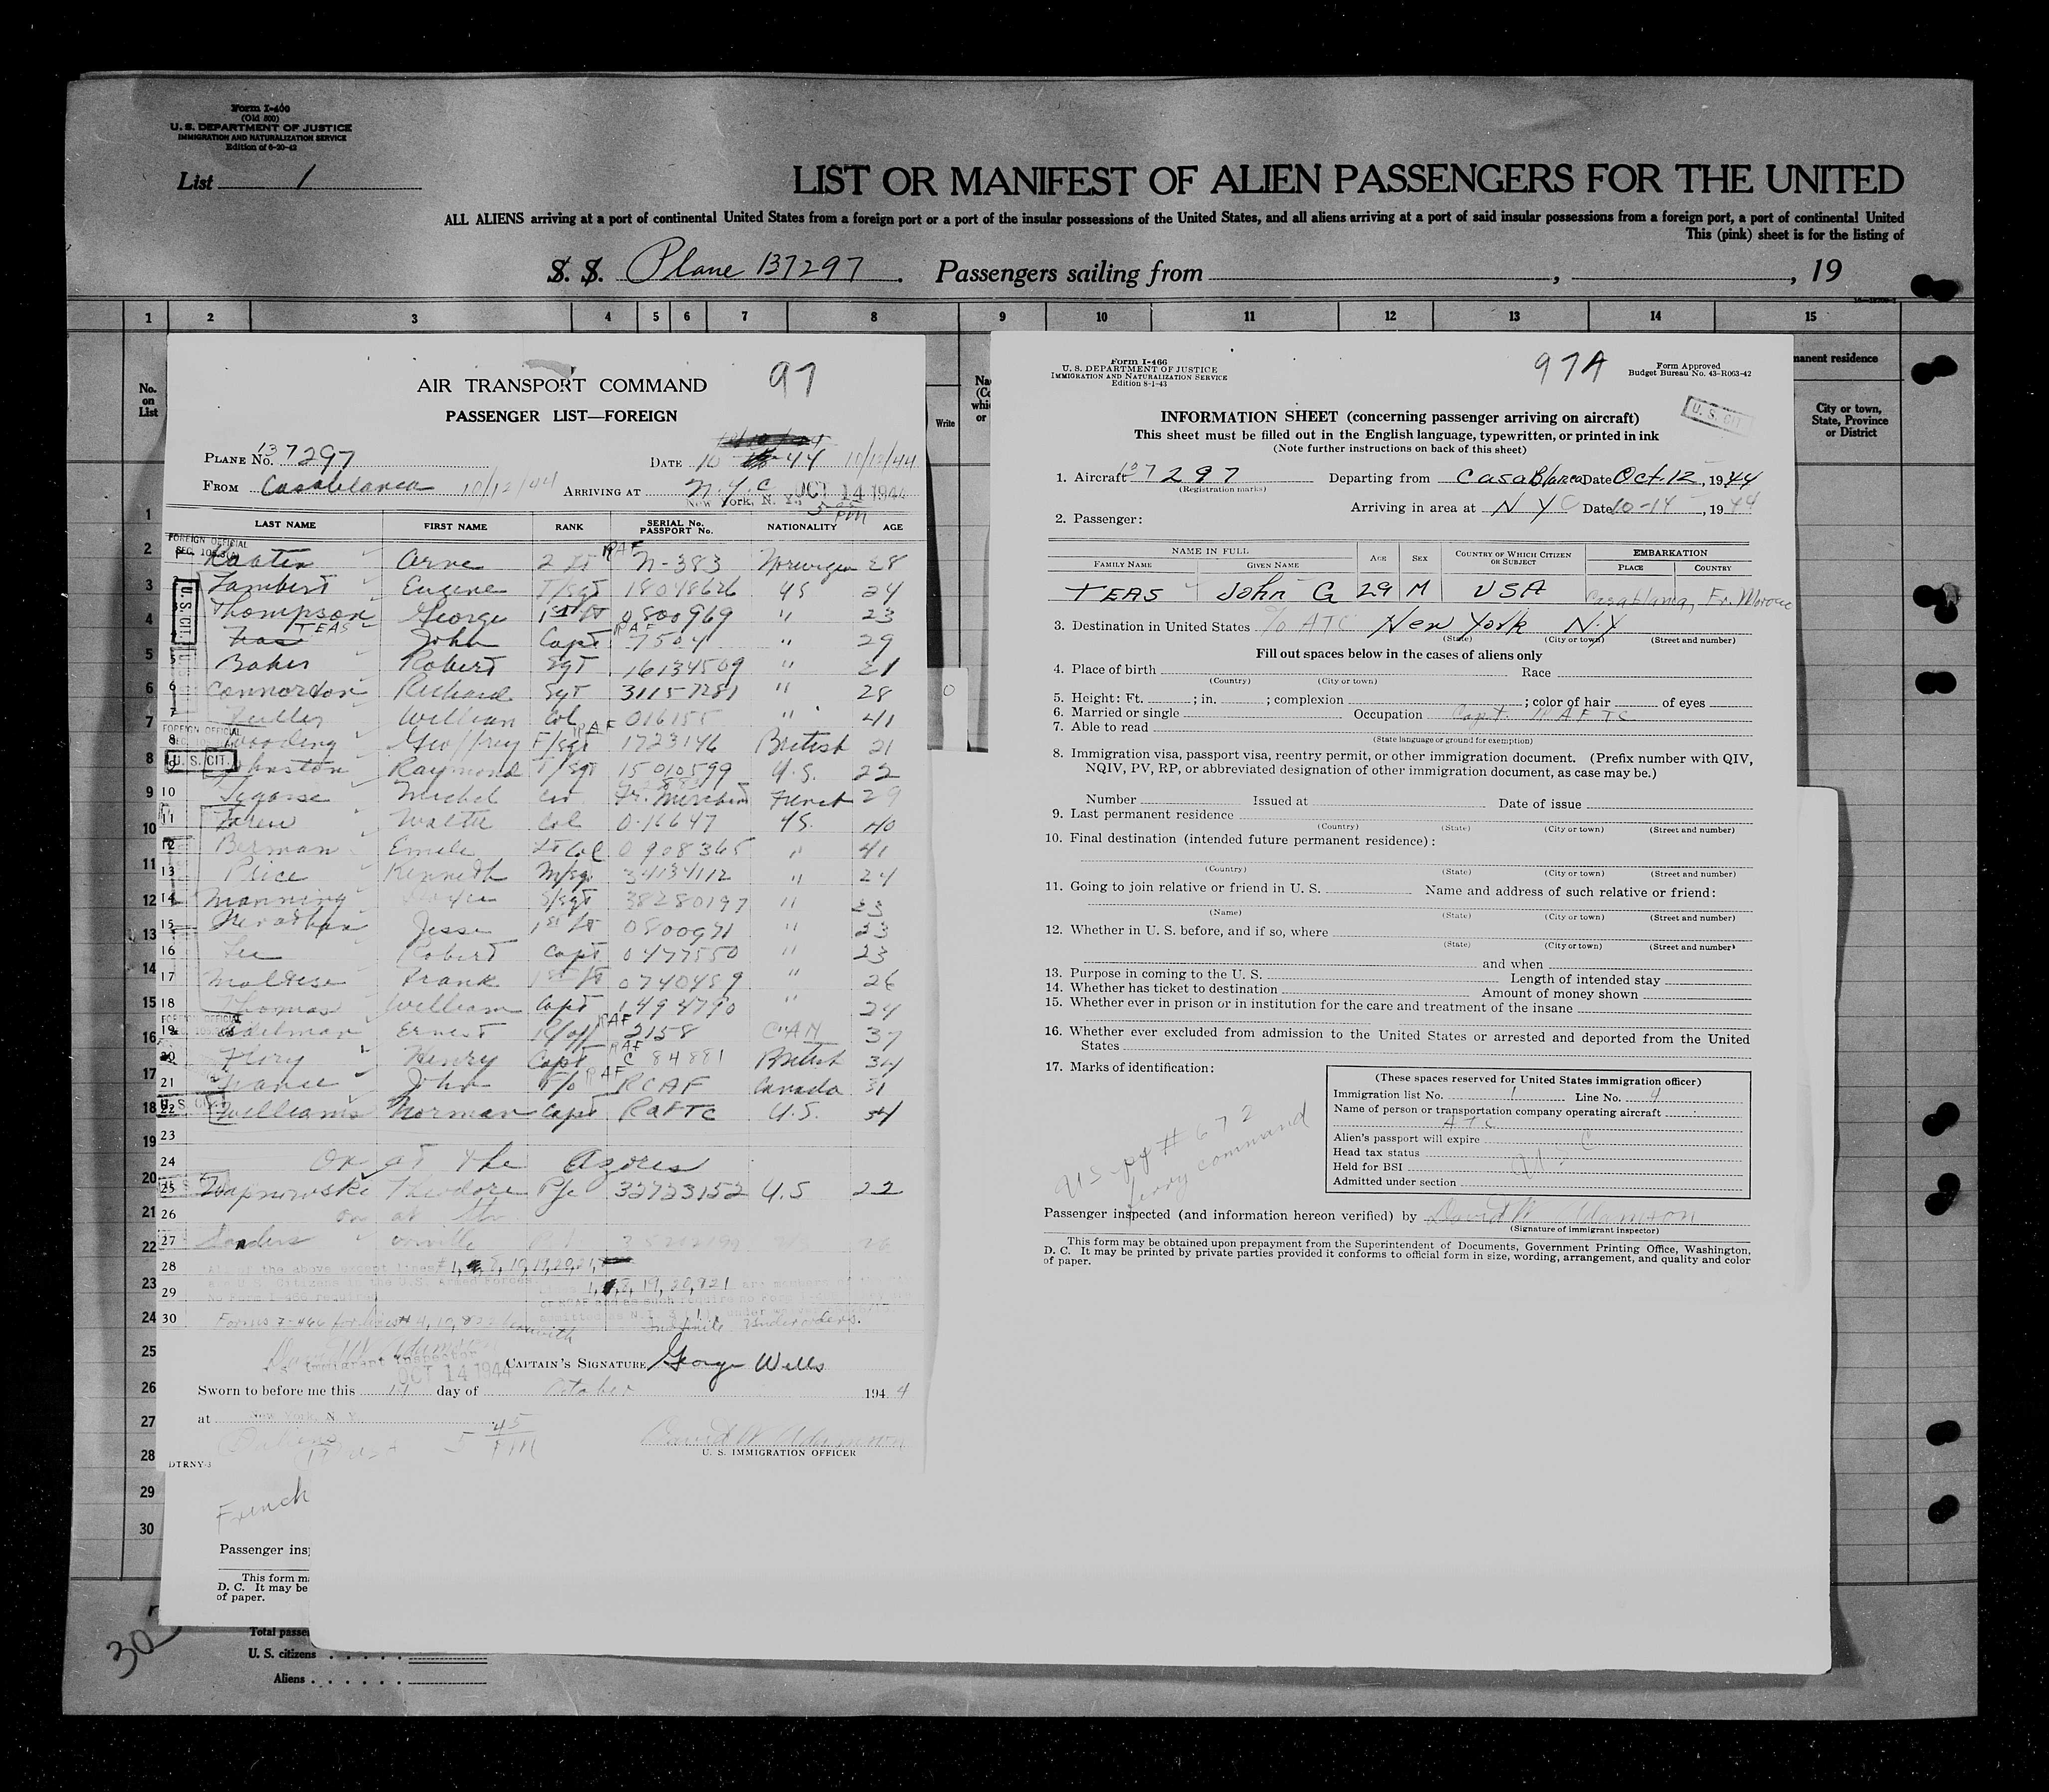 Form I-400
(Old 500)
U. S. DEPARTMENT OF JUSTICE
IMMIGRATION AND NATURALIZATION SERVICE
Edition of 6-20-42
List 1
LIST OR MANIFEST OF ALIEN PASSENGERS FOR THE UNITED
ALL ALIENS arriving at a port of continental United States from a foreign port or a port of the insular possessions of the United States, and all aliens arriving at a port of said insular possessions from a foreign port, a port of continental United
This (pink) sheet is for the listing of
S. S. Plane 137297. Passengers sailing from , , 19
1 2 3 4 5 6 7 8 9 10 11 12 13 14 15
No. on List
Write
manent residence
City or town, State, Province or District
AIR TRANSPORT COMMAND 97
PASSENGER LIST—FOREIGN
PLANE No. 137297 DATE 10 44 10/12/44
FROM Casablanca 10/12/44 ARRIVING AT N.Y.C OCT 14 1944
New York, N. Y.
PM
LAST NAME FIRST NAME RANK SERIAL No. PASSPORT No. NATIONALITY AGE
FOREIGN OFFICIAL
Arne 2 Lt RAF N-383 Norwegen 28
U.S. CIT.
Lambert Eugene T/Sgt 18048626 US 24
Thompson George 1st Lt 0800969 " 23
TEAS John Capt RAF 7504 " 29
5 Baker Robert Sgt 16134509 " 21
6 Connordon Richard Sgt 31157281 " 28
7 Fuller William Col 016155 " 41
FOREIGN OFFICIAL
8 Wooding Geoffrey F/Sgt RAF 1723146 British 21
U. S. CIT.
9 Johnston Raymond T/Sgt 15010599 U.S. 22
10 Michel Civ Fr. French 29
11 Walter Col 0-16647 US. 40
12 Berman Emile Lt Col 0908365 " 41
13 Price Kenneth M/Sgt 34134112 " 24
14 Manning S/Sgt 38280197 " 23
15 Jesse 1st Lt 0800971 " 23
16 Lee Robert Capt 0477550 " 23
17 Maltese Frank 1st Lt 0740489 " 26
18 Thomas William Capt 1494790 " 24
FOREIGN OFFICIAL
19 Edelman Ernest R/off RAF 2158 CAN 37
20 Flory Henry Capt RAF C 84881 British 34
21 John F/o RAF RCAF Canada 31
U. S. CIT.
22 Williams Norman Capt RAFTC U.S.
23
24 On at the Azores
25 Theodore Pfc 32723152 U.S 22
26 on at
27 Sanders 26
28 All of the above except lines # 1, 8, 10, 19, 20, 21,
are U.S. Citizens in the U.S. Armed Forces. 1, 8, 19, 20, &21 are members of
29 No Form I-466 required
30 Forms I-466 for lines # 4, 10, & 22 herewith
David W. Adamson
Immigrant Inspector
OCT 14 1944
CAPTAIN'S SIGNATURE George Wells
Sworn to before me this 14 day of October 1944
at New York, N. Y.
5 45 PM
David W Adamson
U. S. IMMIGRATION OFFICER
DTRNY-3
French
Passenger ins
This form m
D. C. It may be
of paper.
30
Total passe
U. S. citizens
Aliens
1
2
3
4
5
6
7
8
9
10
11
12
13
14
15
16
17
18
19
20
21
22
23
24
25
26
27
28
29
30
Form I-466
U. S. DEPARTMENT OF JUSTICE
IMMIGRATION AND NATURALIZATION SERVICE
Edition 8-1-43
97A
Form Approved
Budget Bureau No. 43-R063-42
U. S. CIT.
INFORMATION SHEET (concerning passenger arriving on aircraft)
This sheet must be filled out in the English language, typewritten, or printed in ink
(Note further instructions on back of this sheet)
1. Aircraft 137297 Departing from Casablanca Date Oct. 12, 1944
(Registration marks)
Arriving in area at N Y C Date 10-14, 1944
2. Passenger:
NAME IN FULL AGE SEX COUNTRY OF WHICH CITIZEN OR SUBJECT EMBARKATION
FAMILY NAME GIVEN NAME PLACE COUNTRY
TEAS John G 29 M USA Casablanca, Fr. Morocc
3. Destination in United States % ATC New York N.Y
(State) (City or town) (Street and number)
Fill out spaces below in the cases of aliens only
4. Place of birth Race
(Country) (City or town)
5. Height: Ft. ; in. ; complexion ; color of hair of eyes
6. Married or single Occupation Capt. RAFTC
7. Able to read
(State language or ground for exemption)
8. Immigration visa, passport visa, reentry permit, or other immigration document. (Prefix number with QIV,
NQIV, PV, RP, or abbreviated designation of other immigration document, as case may be.)
Number Issued at Date of issue
9. Last permanent residence
(Country) (State) (City or town) (Street and number)
10. Final destination (intended future permanent residence):
(Country) (State) (City or town) (Street and number)
11. Going to join relative or friend in U. S. Name and address of such relative or friend:
(Name) (State) (City or town) (Street and number)
12. Whether in U. S. before, and if so, where
(State) (City or town) (Street and number)
and when
13. Purpose in coming to the U. S. Length of intended stay
14. Whether has ticket to destination Amount of money shown
15. Whether ever in prison or in institution for the care and treatment of the insane
16. Whether ever excluded from admission to the United States or arrested and deported from the United
States
17. Marks of identification:
US pp # 672
ferry command
(These spaces reserved for United States immigration officer)
Immigration list No. 1 Line No. 4
Name of person or transportation company operating aircraft
ATC
Alien's passport will expire
Head tax status
Held for BSI
Admitted under section
USC
Passenger inspected (and information hereon verified) by David W Adamson
(Signature of immigrant inspector)
This form may be obtained upon prepayment from the Superintendent of Documents, Government Printing Office, Washington,
D. C. It may be printed by private parties provided it conforms to official form in size, wording, arrangement, and quality and color
of paper.